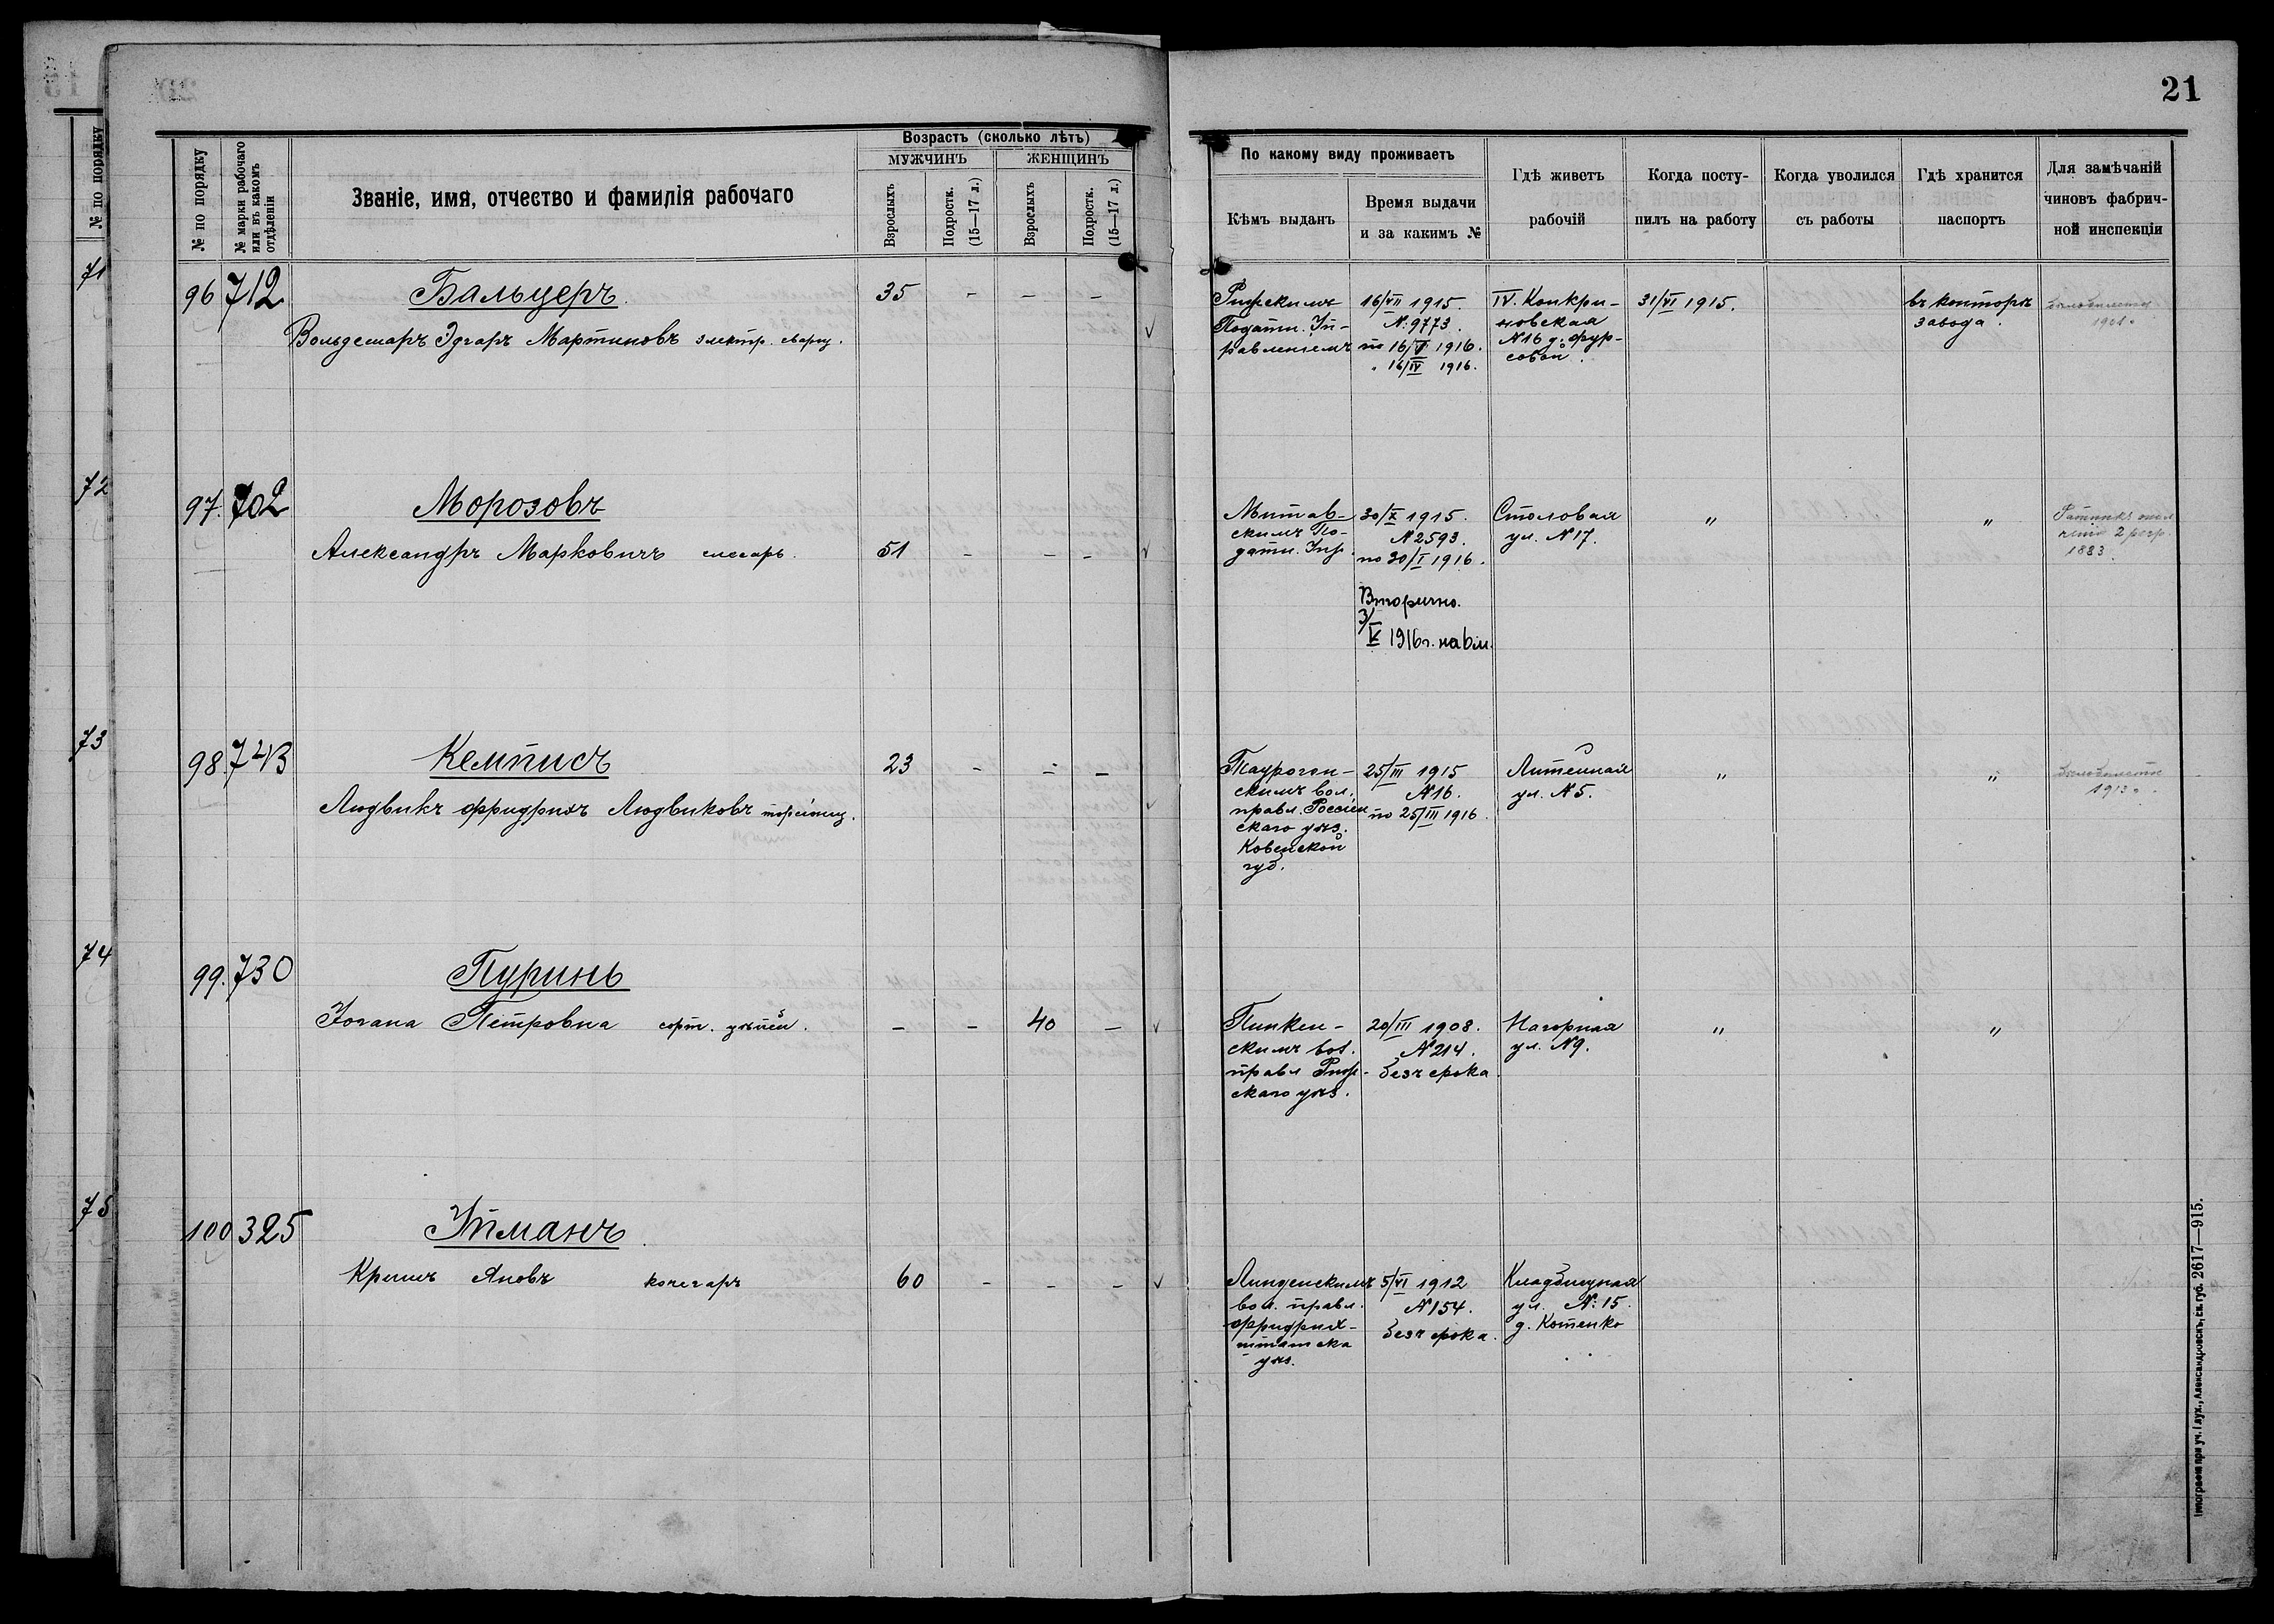 21
№ по порядку
71
72
73
74
75
№ по порядку
№ марки рабочаго
или въ какомъ
отдѣленіи
Званіе, имя, отчество и фамилія рабочаго
Возрастъ (сколько лѣтъ)
МУЖЧИНЪ
ЖЕНЩИНЪ
Взрослыхъ
Подростк.
(15—17 л.)
Взрослыхъ
Подростк.
(15—17 л.)
По какому виду проживаетъ
Кѣмъ выданъ
Время выдачи
и за какимъ №
Гдѣ живетъ
рабочій
Когда посту-
пилъ на работу
Когда уволился
съ работы
Гдѣ хранится
паспортъ
Для замѣчаній
чиновъ фабрич-
ной инспекціи
96 712 Бальцеръ 35 - - -
Вольдемаръ Эдгаръ Мартиновъ электр. сварщ.
Рижскимъ
Податн. Уп-
равленіемъ
16/VII 1915.
№ 9773.
по 16/V 1916.
" 16/IV 1916.
IV. Конкри-
новская
№16 д. Фур-
совой.
31/VI 1915.
въ конторѣ
завода.
97. 702 Морозовъ
Александръ Марковичъ слесарь. 51 - - -
Митав-
скимъ По-
датн. Упр.
30/X 1915.
№ 2593.
по 30/I 1916.
Вторично.
3/V 1916г. на 6 м.
Столовая
ул. №17.
"
"
2 разр.
1883.
98. 743 Кемписъ 23 - - -
Людвикъ Фридрихъ Людвиковъ
Тауроген-
скимъ вол.
правл. Россіен
скаго уѣз.
Ковенской
губ.
25/III 1915
№ 16.
по 25/III 1916.
Литейная
ул. №5.
"
"
1913.
99. 730 Пуринь
Іогана Петровна - - 40 -
Пинкен-
скимъ вол.
правл Риж-
скаго уѣз.
20/III 1908.
№ 214.
безъ срока
Нагорная
ул. №9.
"
"
100 325 Упманъ.
Кришъ Яновъ кочегаръ 60 - - -
Линденскимъ
вол. правл.
Фридрих-
штатска
уѣз.
5/VI 1912
№ 154.
безъ срока.
Кладбищная
ул. №: 15.
д. Котенко
Типографія при уч. Глух., Александровскъ, Ек. губ. 2617—915.